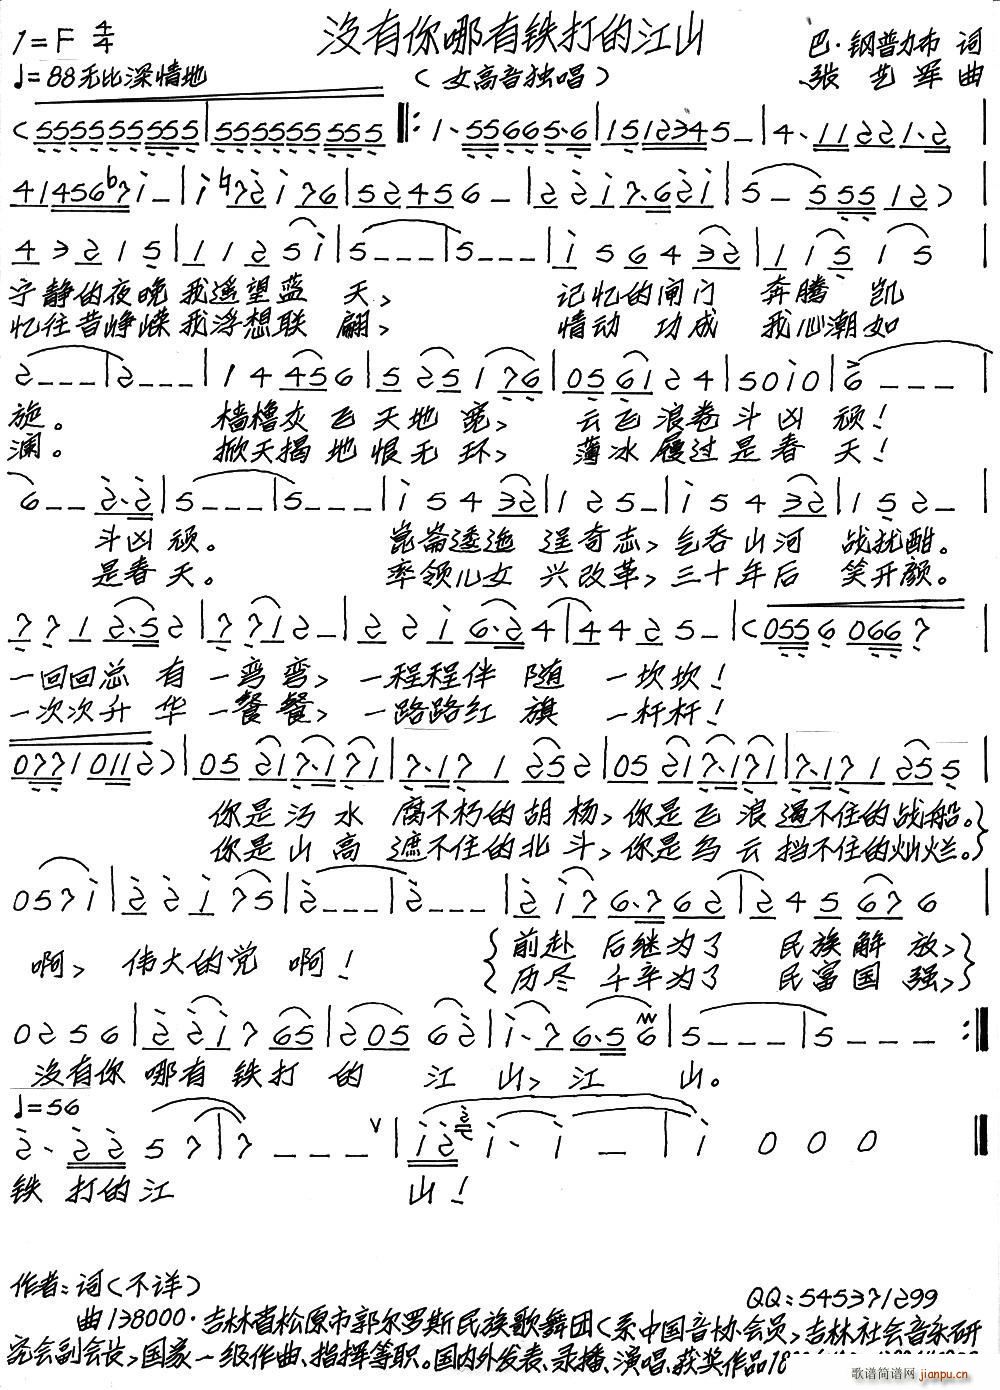 1=F 4/4 没有你哪有铁打的江山 巴·钢普力布 词
♩=88无比深情地 （女高音独唱） 张艺军 曲
（555555555|555555555‖:1·556 65·6|1512345–|4·11221·2|
41456♭7i–|i♮72i76|52456–|22i7·62i|5–55512）|
43215|1125i|5–––|5–––|i56432|11515|
宁静的夜晚我遥望蓝 天， 记忆的闸门 奔腾 凯
忆往昔峥嵘我浮想联 翩， 情动 功成 我心潮如
2–––|2–––|14456|525176|056124|50i0|6–––|
旋。 樯橹灰飞天地宽， 云飞浪卷斗凶顽！
澜。 掀天揭地恨无环， 薄冰履过是春天！
6––2·2|5–––|5–––|i5432|125–|i5432|152–|
斗凶顽。 昆崙逶迤逞奇志，气吞山河 战犹酣。
是春天。 率领儿女兴改革，三十年后 笑开颜。
7712·52|7712–|22i6·24|4425–|（0556 0667|
一回回总有一弯弯，一程程伴随一坎坎！
一次次升华一餐餐，一路路红旗一杆杆！
0771 0112）|05217·171|7·171252|05217·171|7·171255|
你是污水 腐不朽的胡杨，你是飞浪 遏不住的战船。
你是山高 遮不住的北斗，你是乌云 挡不住的灿烂。
057i|22i75|2–––|2–––|2i76·762|245676|
啊，伟大的党 啊！ 前赴后继为了 民族解放，
历尽千辛为了 民富国强，
0256|22i765|20562|i·76·56|5–––|5–––:‖
没有你哪有铁打的江山，江山。
♩=56
2·2257|7–––ᵛ|i2i·i–|i000‖
铁打的江 山！
作者：词（不详）
QQ：545371299
曲138000·吉林省松原市郭尔罗斯民族歌舞团（系中国音协会员，吉林社会音乐研
究会副会长，国家一级作曲、指挥等职。国内外发表、录播、演唱、获奖作品18
歌谱简谱网
jianpu.cn